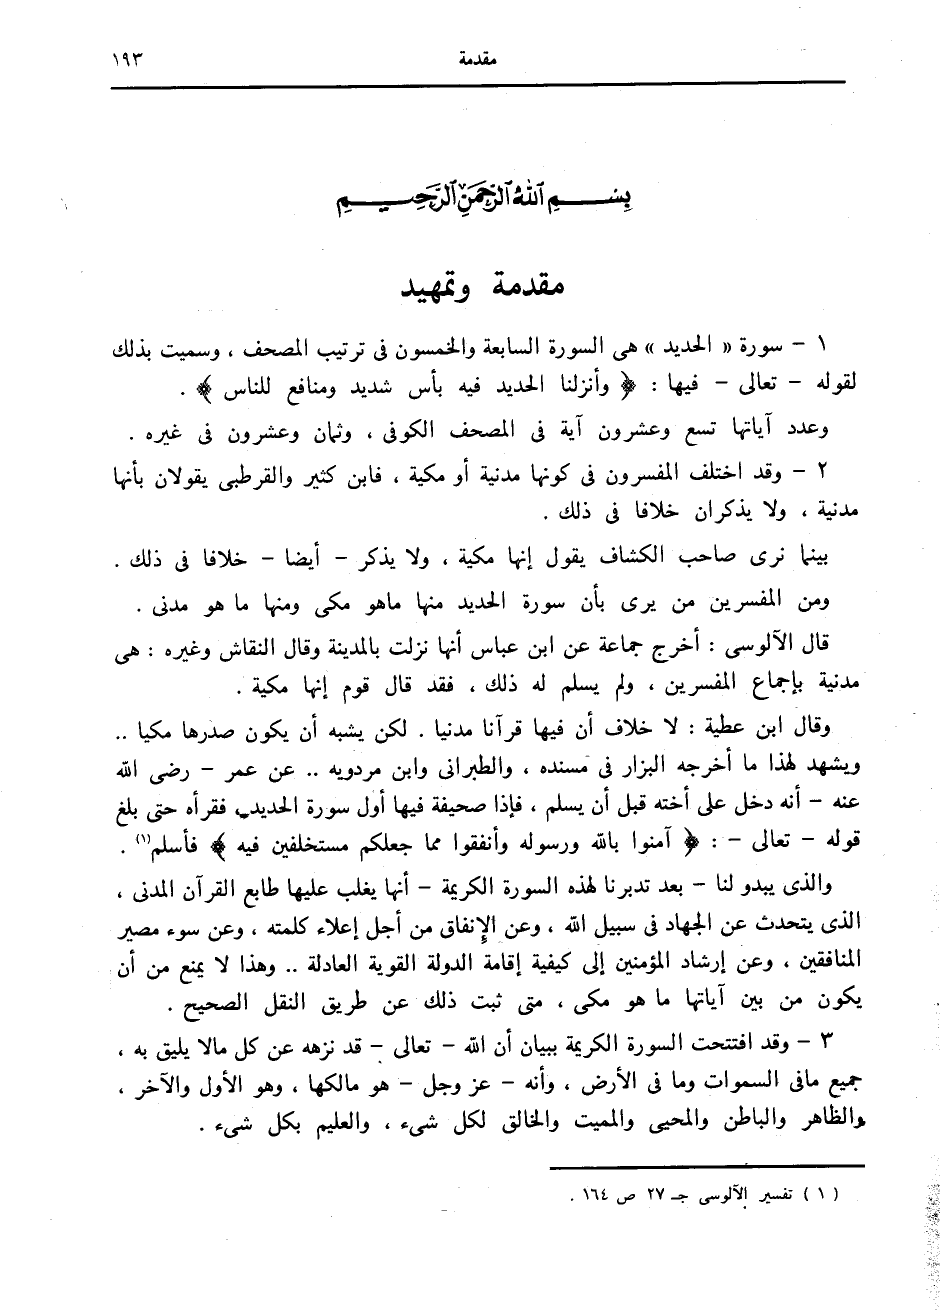 مقدمة ١٩٣
بسم الله الرحمن الرحيم
مقدمة وتمهيد
١ – سورة « الحديد » هى السورة السابعة والخمسون فى ترتيب المصحف ، وسميت بذلك
لقوله – تعالى – فيها : ﴿ وأنزلنا الحديد فيه بأس شديد ومنافع للناس ﴾ .
وعدد آياتها تسع وعشرون آية فى المصحف الكوفى ، وثمان وعشرون فى غيره .
٢ – وقد اختلف المفسرون فى كونها مدنية أو مكية ، فابن كثير والقرطبى يقولان بأنها
مدنية ، ولا يذكران خلافا فى ذلك .
بينما نرى صاحب الكشاف يقول إنها مكية ، ولا يذكر – أيضا – خلافا فى ذلك .
ومن المفسرين من يرى بأن سورة الحديد منها ماهو مكى ومنها ما هو مدنى .
قال الآلوسى : أخرج جماعة عن ابن عباس أنها نزلت بالمدينة وقال النقاش وغيره : هى
مدنية بإجماع المفسرين ، ولم يسلم له ذلك ، فقد قال قوم إنها مكية .
وقال ابن عطية : لا خلاف أن فيها قرآنا مدنيا . لكن يشبه أن يكون صدرها مكيا ..
ويشهد لهذا ما أخرجه البزار فى مسنده ، والطبرانى وابن مردويه .. عن عمر – رضى الله
عنه – أنه دخل على أخته قبل أن يسلم ، فإذا صحيفة فيها أول سورة الحديد فقرأه حتى بلغ
قوله – تعالى – : ﴿ آمنوا بالله ورسوله وأنفقوا مما جعلكم مستخلفين فيه ﴾ فأسلم(١) .
والذى يبدو لنا – بعد تدبرنا لهذه السورة الكريمة – أنها يغلب عليها طابع القرآن المدنى ،
الذى يتحدث عن الجهاد فى سبيل الله ، وعن الإنفاق من أجل إعلاء كلمته ، وعن سوء مصير
المنافقين ، وعن إرشاد المؤمنين إلى كيفية إقامة الدولة القوية العادلة .. وهذا لا يمنع من أن
يكون من بين آياتها ما هو مكى ، متى ثبت ذلك عن طريق النقل الصحيح .
٣ – وقد افتتحت السورة الكريمة ببيان أن الله – تعالى – قد نزهه عن كل مالا يليق به ،
جميع مافى السموات وما فى الأرض ، وأنه – عز وجل – هو مالكها ، وهو الأول والآخر ،
والظاهر والباطن والمحيى والمميت والخالق لكل شىء ، والعليم بكل شىء .
( ١ ) تفسير الآلوسى جـ ٢٧ ص ١٦٤ .